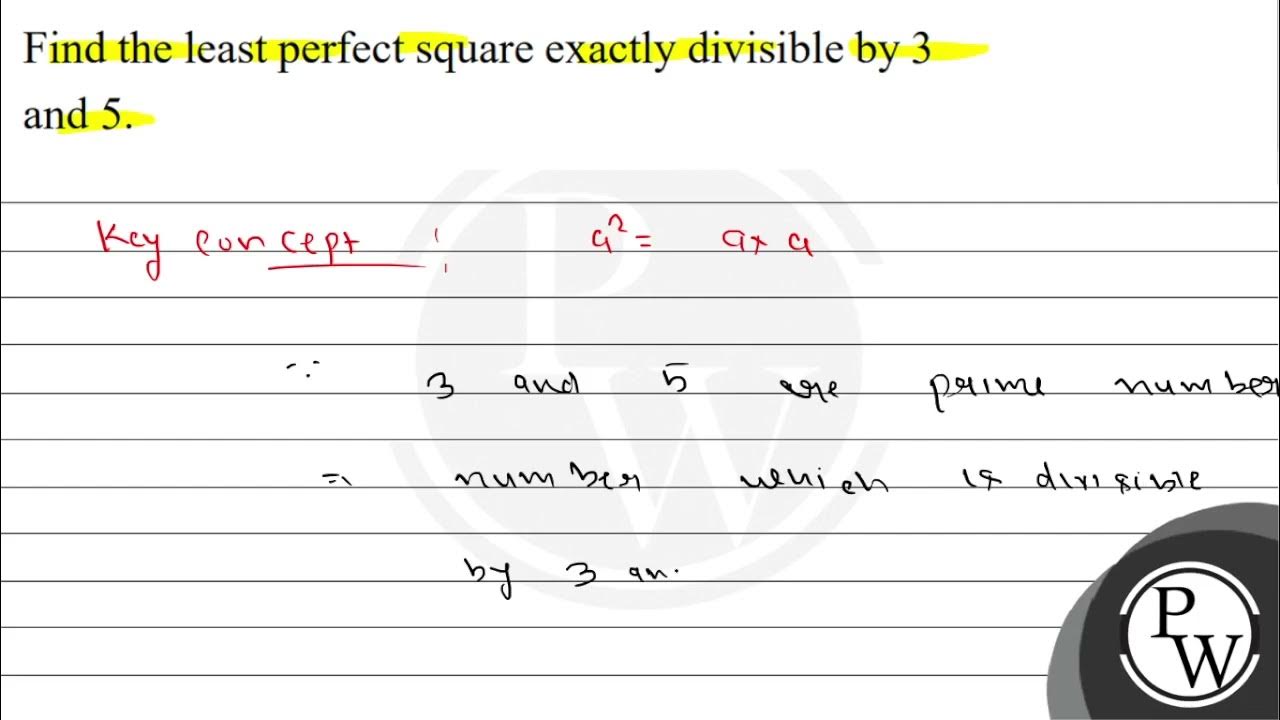 Find the least perfect square exactly divisible by 3
and 5.
Key concept : a² = a x a
∵ 3 and 5 are prime number
⇒ number which is divisible
by 3 an
PW
PW